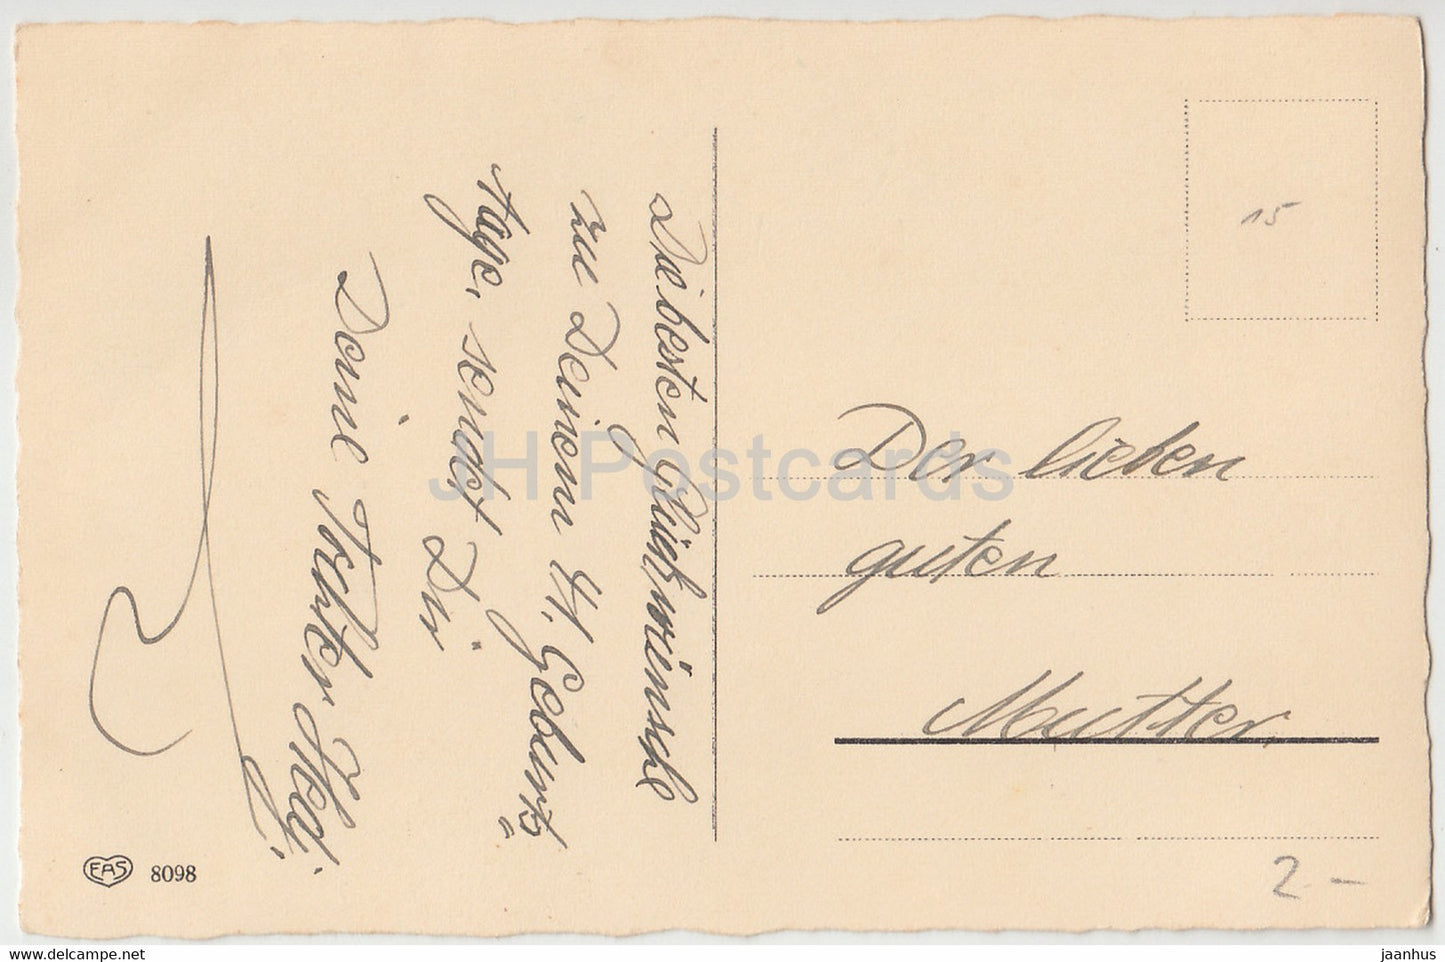 Die besten Glückwünsche
zu Deinem 41. Geburts"
tage, sendet Dir"
Deine Tochter Hedi.
15
Der lieben
guten
Mutter.
EAS 8098
2.-
JH Postcards
hip-cards.com
jaanhus